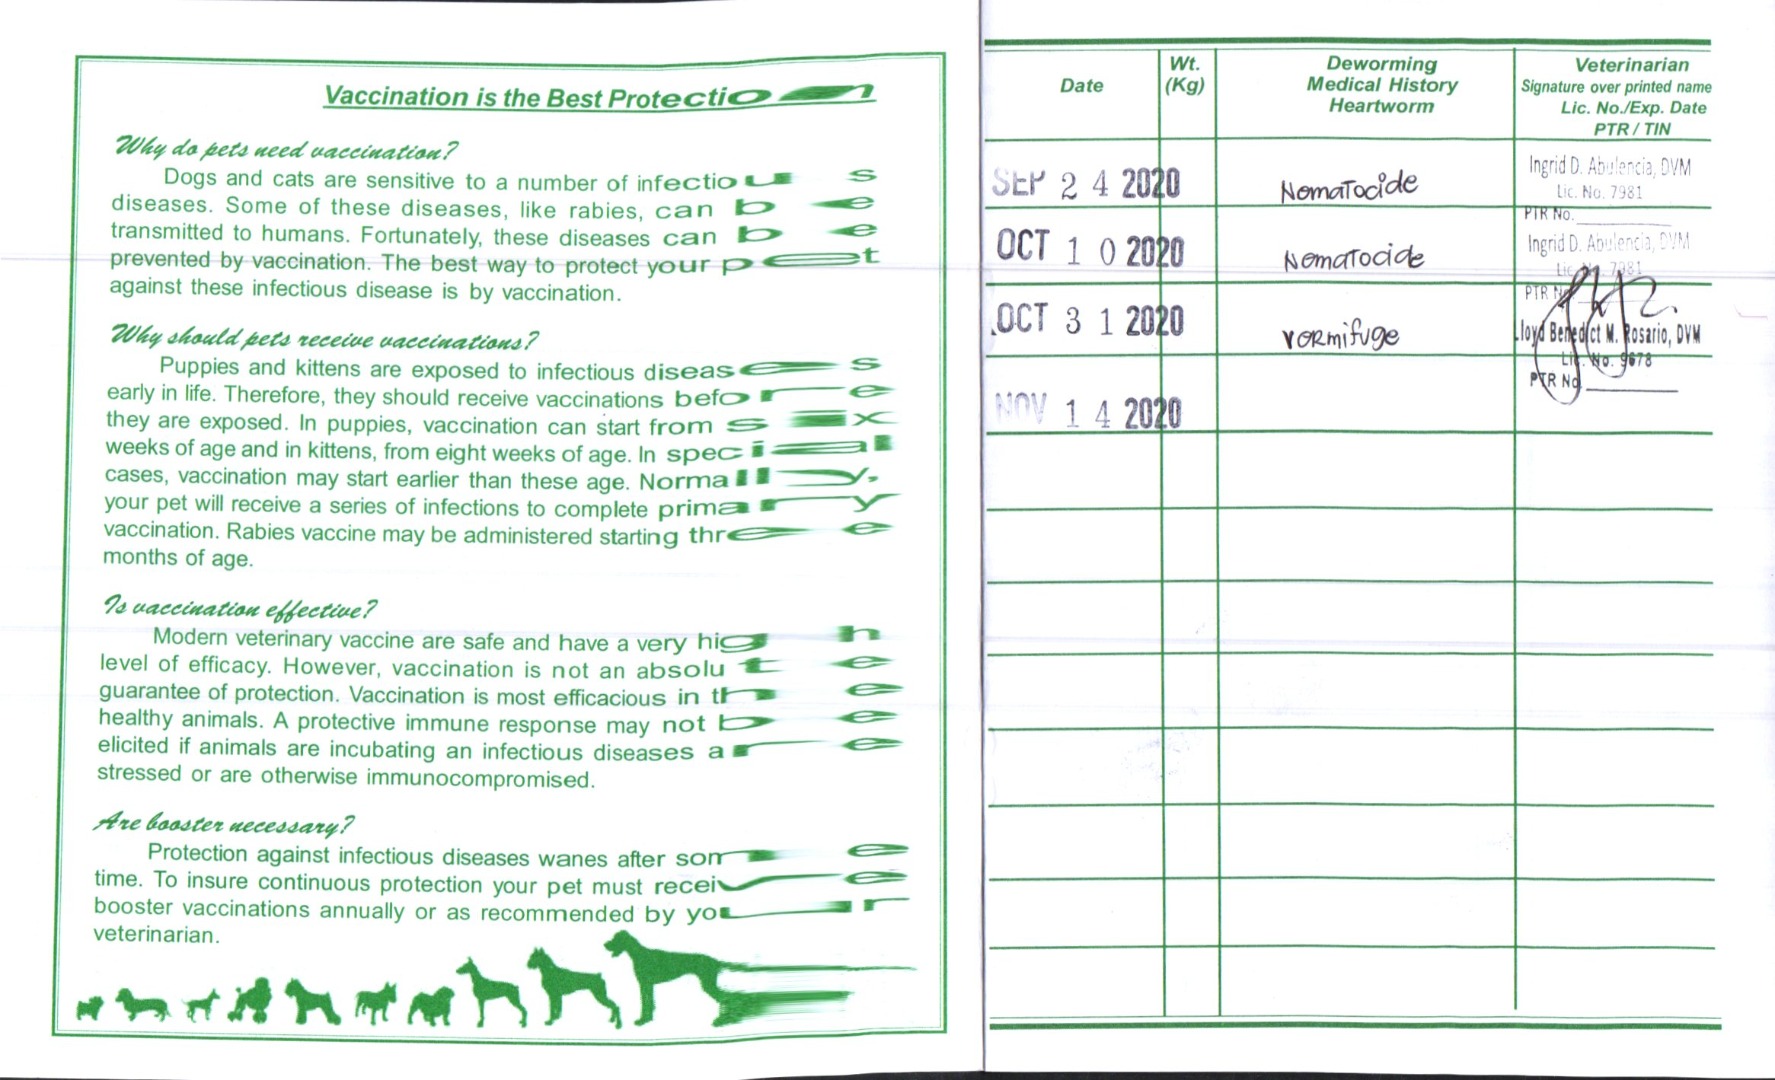 Vaccination is the Best Protection
Why do pets need vaccination?
Dogs and cats are sensitive to a number of infectious
diseases. Some of these diseases, like rabies, can be
transmitted to humans. Fortunately, these diseases can be
prevented by vaccination. The best way to protect your pet
against these infectious disease is by vaccination.
Why should pets receive vaccinations?
Puppies and kittens are exposed to infectious diseases
early in life. Therefore, they should receive vaccinations before
they are exposed. In puppies, vaccination can start from six
weeks of age and in kittens, from eight weeks of age. In special
cases, vaccination may start earlier than these age. Normally,
your pet will receive a series of infections to complete primary
vaccination. Rabies vaccine may be administered starting three
months of age.
Is vaccination effective?
Modern veterinary vaccine are safe and have a very high
level of efficacy. However, vaccination is not an absolute
guarantee of protection. Vaccination is most efficacious in the
healthy animals. A protective immune response may not be
elicited if animals are incubating an infectious diseases are
stressed or are otherwise immunocompromised.
Are booster necessary?
Protection against infectious diseases wanes after some
time. To insure continuous protection your pet must receive
booster vaccinations annually or as recommended by your
veterinarian.
Date
Wt.
(Kg)
Deworming
Medical History
Heartworm
Veterinarian
Signature over printed name
Lic. No./Exp. Date
PTR / TIN
SEP 24 2020
Nematocide
Ingrid D. Abulencia, DVM
Lic. No. 7981
PTR No.
OCT 10 2020
Nematocide
Ingrid D. Abulencia, DVM
Lic. No. 7981
PTR No.
OCT 31 2020
vermifuge
Lloyd Benedict M. Rosario, DVM
Lic. No. 9678
PTR No.
NOV 14 2020